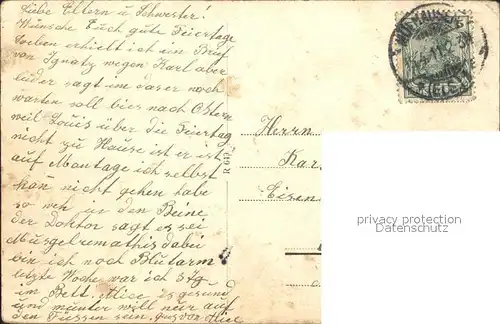 Liebe Eltern u Schwester!
Wünsche Euch gute Feiertage
Soeben erhielt ich ein Brief
von Ignatz wegen Karl aber
leider sagt im daser noch
warten soll bies nach Ostern
weil Louis über die Feiertag
nicht zu Hause ist er ist
auf Montage ich selbst
kan nicht gehen habe
so weh in den Beine
der Doktor sagt es sei
Musgelremathis dabei
bin ich noch Blutarm
letzte Woche war ich 5 Tg
im Bett. Alice is gesund
und munter will nur auf
den Füssen sein. Gus von Alice
R 619
Herrn
Kar
Eisen
privacy protection
Datenschutz